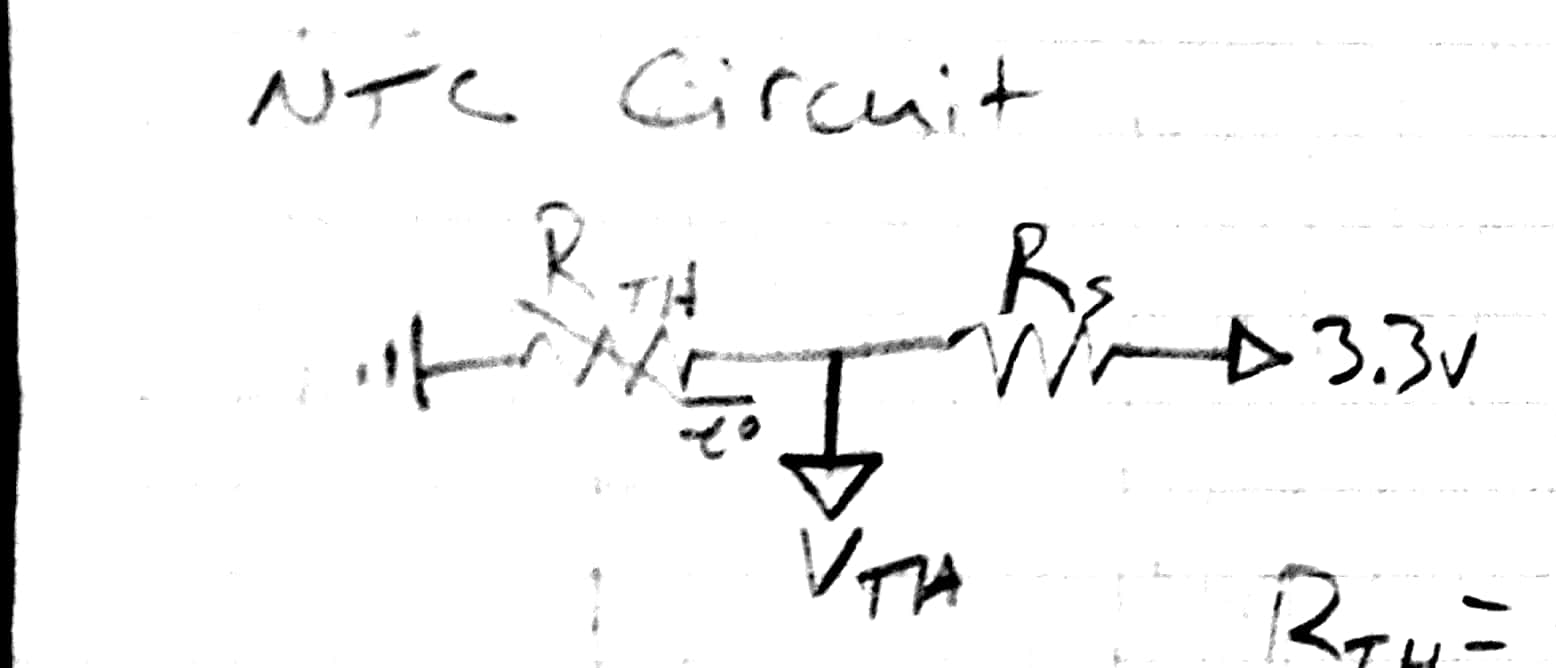 NTC Circuit
R TH
Rs
3.3v
t°
VTH
RTH =